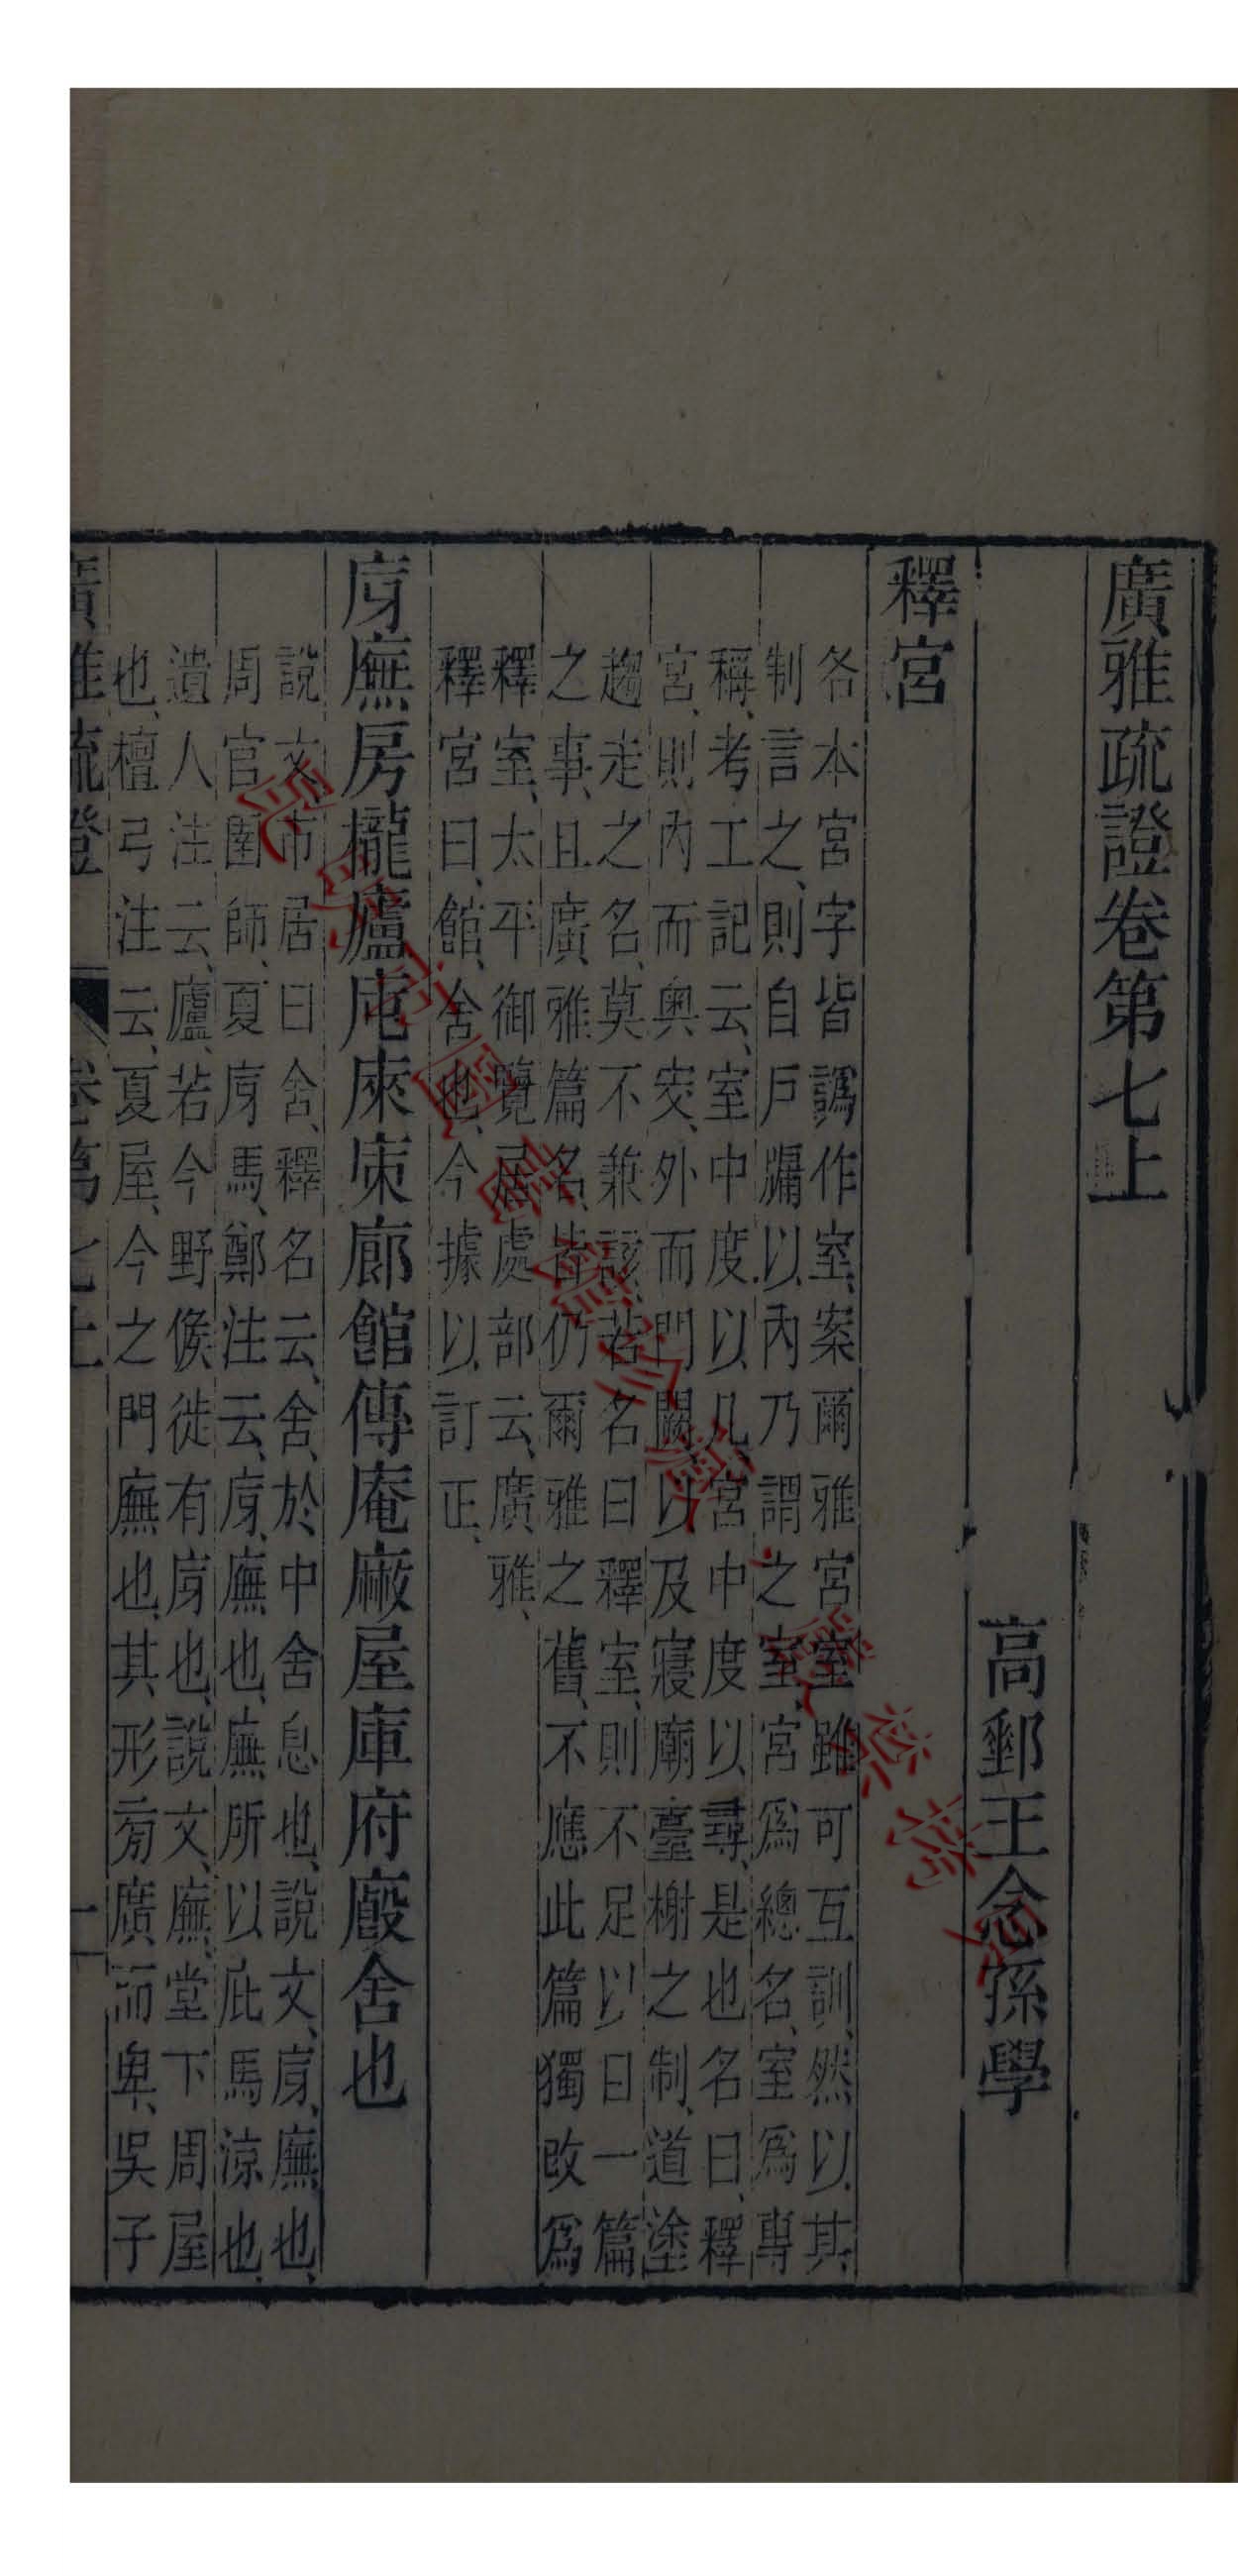 廣雅疏證卷第七上
高郵王念孫學
釋宮
各本宮字皆譌作室、案爾雅宮室雖可互訓、然以其
制言之、則自戶牖以內乃謂之室、宮爲總名、室爲專
稱、考工記云、室中度以几、宮中度以尋、是也名曰、釋
宮、則內而奧窔、外而門闕、以及寢廟臺榭之制、道塗
趨走之名、莫不兼該、若名曰釋室、則不足以曰一篇
之事、且廣雅篇名、皆仍爾雅之舊、不應此篇獨改爲
釋室、太平御覽居處部云、廣雅、
釋宮曰、館、舍也、今據以訂正、
庌廡房櫳廬㡯庲廊館傳庵屋庫府廄舍也
說文、市居曰舍、釋名云、舍、於中舍息也、說文、庌、廡也、
周官圉師、夏庌馬、鄭注云、庌、廡也、廡所以庇馬涼也、
遺人注云、廬、若今野候徙有庌也、說文、廡、堂下周屋
也、檀弓注云、夏屋、今之門廡也、其形㫄廣而卑、吳子
廣雅疏證 卷第七上 一